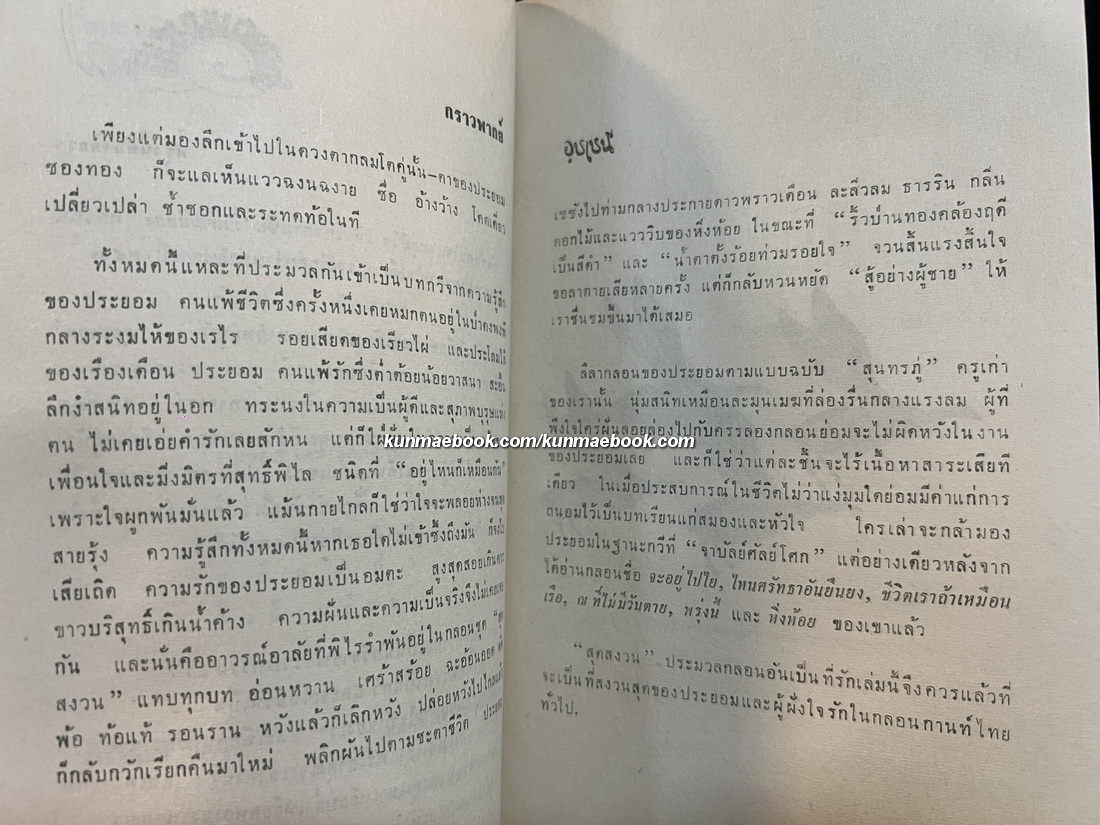 กราวพากย์
เพียงแต่มองลึกเข้าไปในดวงตากลมโตคู่นั้น—ตาของประยอม
ซองทอง ก็จะแลเห็นแววฉงนฉงาย ซื่อ อ้างว้าง โดดเดี่ยว
เปลี่ยวเปล่า ช้ำชอกและระทดท้อในที
ทั้งหมดนี้แหละที่ประมวลกันเข้าเป็นบทกวีจากความรู้สึก
ของประยอม คนแพ้ชีวิตซึ่งครั้งหนึ่งเคยหมกตนอยู่ในป่าดงพงพี
กลางระงมไห้ของเรไร รอยเสียดของเรียวไผ่ และประโลมไล้
ของเรืองเดือน ประยอม คนแพ้รักซึ่งต่ำต้อยน้อยวาสนา สะอื้น
ลึกงำสนิทอยู่ในอก ทระนงในความเป็นผู้ดีและสุภาพบุรุษแห่ง
ตน ไม่เคยเอ่ยคำรักเลยสักหน แต่ก็ใฝ่
เพื่อนใจและมิ่งมิตรที่สุทธิ์พิไล ชนิดที่ “อยู่ไหนก็เหมือนกัน”
เพราะใจผูกพันมั่นแล้ว แม้นกายไกลก็ใช่ว่าใจจะพลอยห่างจน
สายรุ้ง ความรู้สึกทั้งหมดนี้หากเธอใดไม่เข้าซึ้งถึงมัน ก็
เสียเถิด ความรักของประยอมเป็นอมตะ สูงสุดสอยเกินดาว
ขาวบริสุทธิ์เกินน้ำค้าง ความฝันและความเป็นจริงจึงไม่เคย
กัน และนั่นคืออาวรณ์อาลัยที่พิไรรำพันอยู่ในกลอนชุด “สุด
สงวน” แทบทุกบท อ่อนหวาน เศร้าสร้อย ฉะอ้อนออด
พ้อ ท้อแท้ รอนราน หวังแล้วก็เลิกหวัง ปล่อยหวังไปไกลแล้ว
ก็กลับกวักเรียกคืนมาใหม่ พลิกผันไปตามชะตาชีวิต ประยอม
เซซังไปท่ามกลางประกายดาวพราวเดือน ละลิ่วลม ธารริน กลิ่น
ดอกไม้และแวววิบของหิ่งห้อย ในขณะที่ “ริ้วป่านทองคล้องฤดี
เป็นสีดำ” และ “น้ำตาตั้งร้อยท่วมรอยใจ” จวนสิ้นแรงสิ้นใจ
ขอลาตายเสียหลายครั้ง แต่ก็กลับหวนหยัด “สู้อย่างผู้ชาย” ให้
เราชื่นชมขึ้นมาได้เสมอ
ลีลากลอนของประยอมตามแบบฉบับ “สุนทรภู่” ครูเก่า
ของเรานั้น นุ่มสนิทเหมือนละมุนเมฆที่ล่องรื่นกลางแรงลม ผู้ที่
พึงใจใคร่ฝันลอยล่องไปกับครรลองกลอนย่อมจะไม่ผิดหวังในงาน
ของประยอมเลย และก็ใช่ว่าแต่ละชิ้นจะไร้เนื้อหาสาระเสียที
เดียว ในเมื่อประสบการณ์ในชีวิตไม่ว่าแง่มุมใดย่อมมีค่าแก่การ
ถนอมไว้เป็นบทเรียนแก่สมองและหัวใจ ใครเล่าจะกล้ามอง
ประยอมในฐานะกวีที่ “จาบัลย์ศัลย์โศก” แต่อย่างเดียวหลังจาก
ได้อ่านกลอนชื่อ จะอยู่ไปไย, ไหนศรัทธาอันยืนยง, ชีวิตเราถ้าเหมือน
เรือ, ณ ที่ไม่มีวันตาย, พรุ่งนี้ และ หิ่งห้อย ของเขาแล้ว
“สุดสงวน” ประมวลกลอนอันเป็นที่รักเล่มนี้จึงควรแล้วที่
จะเป็นที่สงวนสุดของประยอมและผู้ฝั่งใจรักในกลอนกานท์ไทย
ทั่วไป.
kunmaebook.com/kunmaebook.com